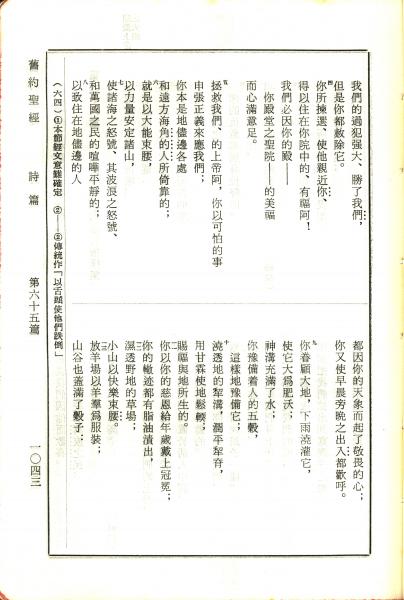 我們的過犯强大、勝了我們，
但是你都赦除它。
四
你所揀選、使他親近你、
得以住在你院中的、有福阿！
我們必因你的殿——
你殿堂之聖院——的美福
而心滿意足。
五
拯救我們、的上帝阿，你以可怕的事
申張正義來應我們；
你本是地儘邊各處
和遠方海角的人所倚靠的；
六
就是以大能束腰，
以力量安定諸山，
七
使諸海之怒號、其波浪之怒號、
和萬國之民的喧嘩平靜的；
八
以致住在地儘邊的人
都因你的天象而起了敬畏的心；
你又使早晨旁晚之出入都歡呼。
九
你眷顧大地，下雨澆灌它，
使它大爲肥沃；
神溝充滿了水；
你豫備着人的五穀，
這樣地豫備它；
一〇
澆透地的犂溝，潤平犂脊，
用甘霖使地鬆輭；
賜福與地所生的。
一一
你以你的慈恩給年歲戴上冠冕；
你的轍迹都有脂油漬出，
一二
濕透野地的草場；
小山以快樂束腰。
一三
放羊場以羊羣爲服裝；
山谷也蓋滿了穀子；
（六四）①本節經文意難確定　②——③傳統作「以舌頭使他們跌倒」
舊約聖經　詩篇　第六十五篇　一〇四三